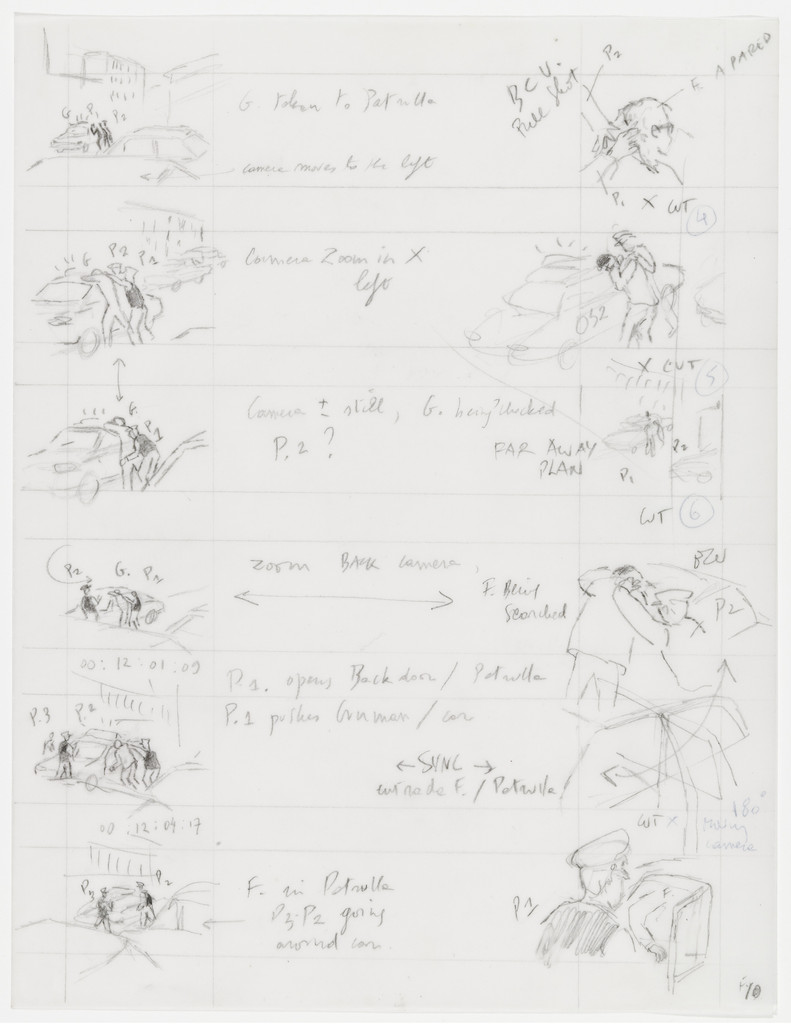 P2
F. A PARED
B C U.
Full Shot
G. P1 P2
G. taken to Patrulla
camera moves to the left
P1 X CUT 4
G. P.2 P1
Camera Zoom in X
left
032
X CUT 5
G. P1
Camera ± still, G. being checked
P.2 ?
FAR AWAY
PLAN
P1 P2
CUT 6
P2 G. P1
Zoom BACK camera
F. Being
Searched
P2
00:12:01:09
P.1. opens Back door / Patrulla
P.3 P.2
P.1 pushes Gunman / car
← SYNC →
entrada F. / Patrulla
CUT X
180°
Moving
camera
00:12:04:17
P3 P2
F. in Patrulla
P3-P2 going
around car.
P1
F.